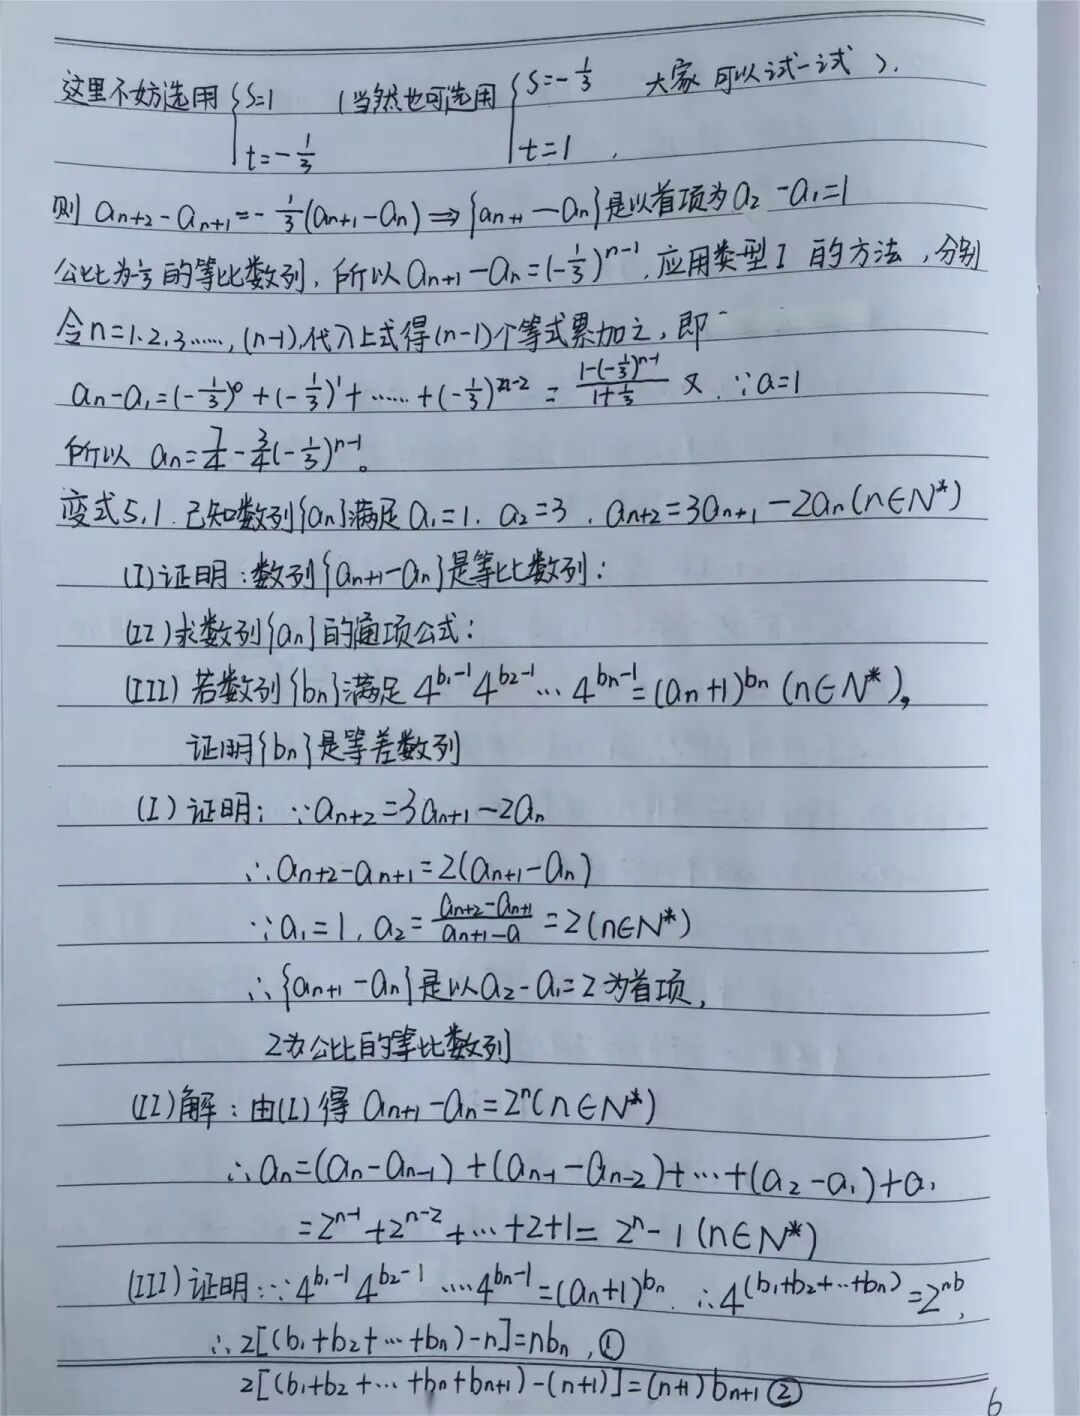 这里不妨选用{s=1 t=-1/3 (当然也可选用{s=-1/3 t=1 大家可以试一试).
则 aₙ₊₂-aₙ₊₁=-1/3(aₙ₊₁-aₙ)⇒{aₙ₊₁-aₙ}是以首项为a₂-a₁=1
公比为-1/3的等比数列,所以aₙ₊₁-aₙ=(-1/3)ⁿ⁻¹.应用类型I的方法,分别
令n=1.2.3……,(n-1),代入上式得(n-1)个等式累加之,即
aₙ-a₁=(-1/3)⁰+(-1/3)¹+……+(-1/3)ⁿ⁻²=(1-(-1/3)ⁿ⁻¹)/(1+1/3) 又.∵a=1
所以 aₙ=7/4-3/4(-1/3)ⁿ⁻¹。
变式5,1.已知数列{aₙ}满足a₁=1.a₂=3.aₙ₊₂=3aₙ₊₁-2aₙ(n∈N*)
(I)证明:数列{aₙ₊₁-aₙ}是等比数列:
(II)求数列{aₙ}的通项公式:
(III)若数列{bₙ}满足4^(b₁-1)4^(b₂-1)…4^(bₙ-1)=(aₙ+1)^bₙ(n∈N*),
证明{bₙ}是等差数列
(I)证明:∵aₙ₊₂=3aₙ₊₁-2aₙ
∴aₙ₊₂-aₙ₊₁=2(aₙ₊₁-aₙ)
∵a₁=1,a₂=(aₙ₊₂-aₙ₊₁)/(aₙ₊₁-a)=2(n∈N*)
∴{aₙ₊₁-aₙ}是以a₂-a₁=2为首项,
2为公比的等比数列
(II)解:由(I)得aₙ₊₁-aₙ=2ⁿ(n∈N*)
∴aₙ=(aₙ-aₙ₋₁)+(aₙ₋₁-aₙ₋₂)+…+(a₂-a₁)+a₁
=2ⁿ⁻¹+2ⁿ⁻²+…+2+1=2ⁿ-1(n∈N*)
(III)证明:∵4^(b₁-1)4^(b₂-1)….4^(bₙ-1)=(aₙ+1)^bₙ.∴4^(b₁+b₂+…+bₙ)=2^nb,
∴2[(b₁+b₂+…+bₙ)-n]=nbₙ,①
2[(b₁+b₂+…+bₙ+bₙ₊₁)-(n+1)]=(n+1)bₙ₊₁②
6